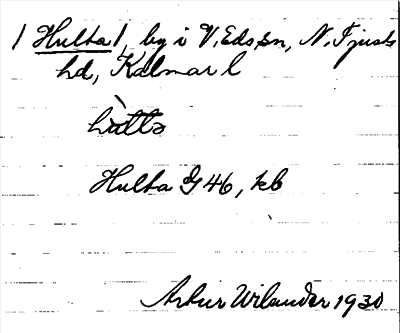 / Hulta /, by i V. Eds sn, N. Tjusts
hd, Kalmar l
hùlta
Hulta G 46, kb
Artur Wilander 1930